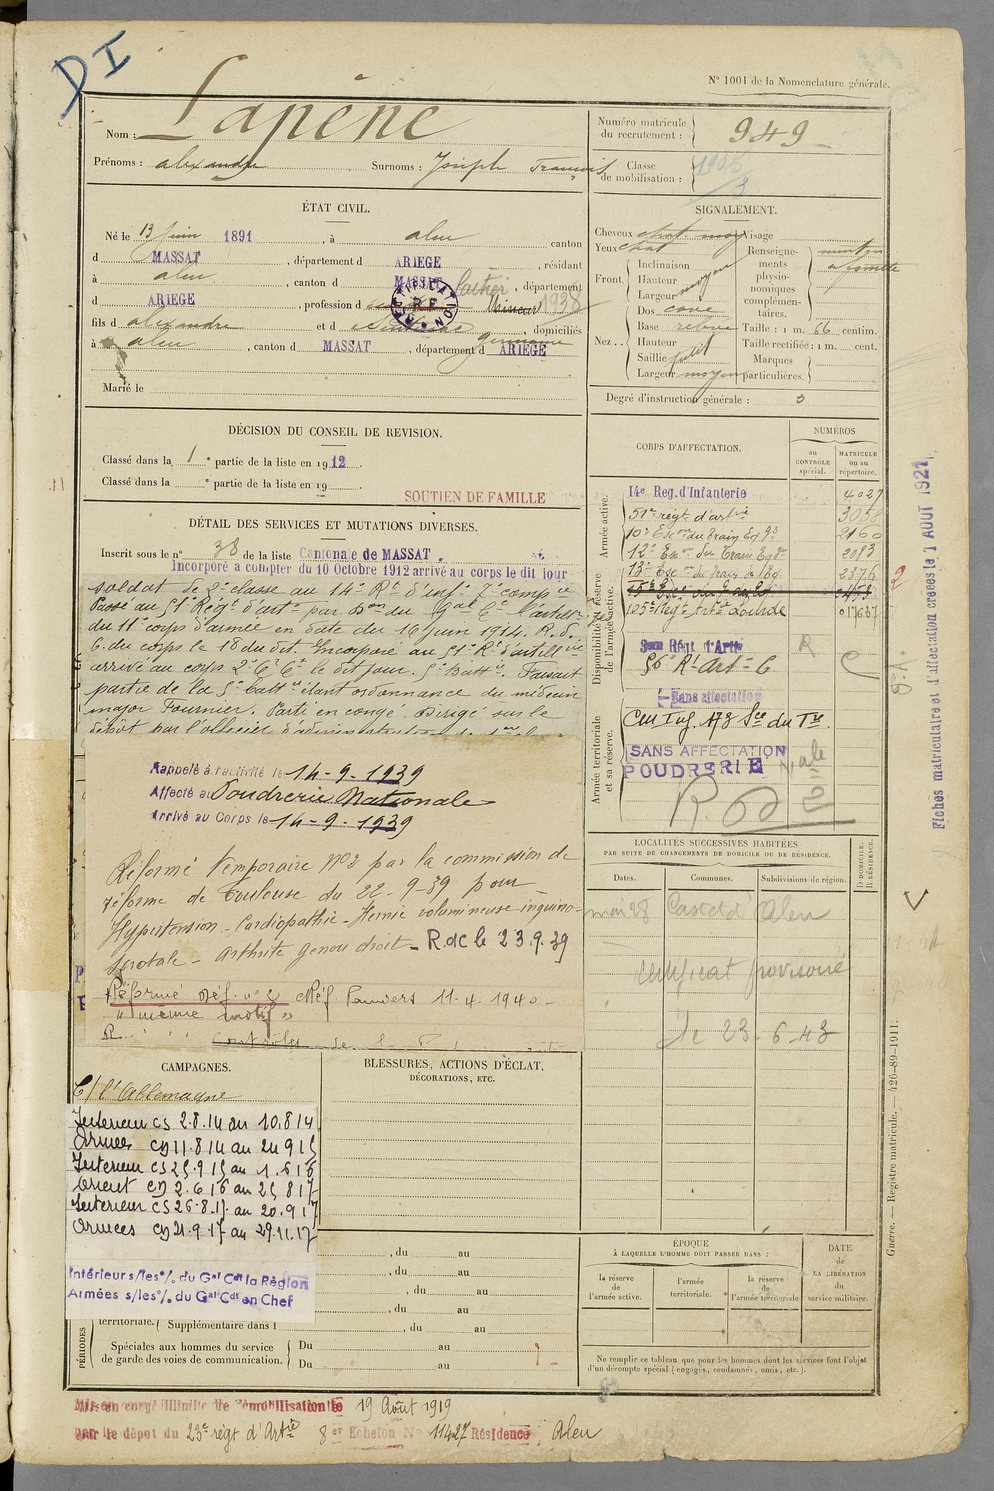 DI
N° 1001 de la Nomenclature générale.
Nom : Lapène
Prénoms : alexandre Surnoms : Joseph François
Numéro matricule du recrutement : 949
Classe de mobilisation :
ÉTAT CIVIL.
Né le 13 Juin 1891, à aleu canton
d MASSAT, département d ARIEGE, résidant
à aleu, canton d MASSAT, département
d ARIEGE, profession d Mineur 1938
RECTIFICATION R F
fils d alexandre et d , domiciliés
à aleu, canton d MASSAT, département d ARIEGE
Marié le
SIGNALEMENT.
Cheveux chat. moy Visage
Yeux chat
Front Inclinaison
Hauteur moyen
Largeur
Nez Dos cave
Base relevé
Hauteur
Saillie petit
Largeur moyen
Renseignements physionomiques complémentaires.
Taille : 1 m. 66 centim.
Taille rectifiée : 1 m. cent.
Marques particulières.
Degré d'instruction générale : 3
DÉCISION DU CONSEIL DE REVISION.
Classé dans la 1° partie de la liste en 1912.
Classé dans la ° partie de la liste en 19
SOUTIEN DE FAMILLE
DÉTAIL DES SERVICES ET MUTATIONS DIVERSES.
Inscrit sous le n° 38 de la liste Cantonale de MASSAT.
Incorporé à compter du 10 Octobre 1912 arrivé au corps le dit jour
soldat de 2e classe au 14e Rt d'infie
Passé au 51e Régt d'artie par
du 11e corps d'armée en date du 16 juin 1914. R. d.
C. du corps le 18 du dit. Incorporé au 51e Rt d'artillerie
arrivé au corps le dit jour. Faisant
partie de la 5e battie étant ordonnance du médecin
major Fournier. Parti en congé. Dirigé sur le
dépôt par l'officier d'administration
Rappelé à l'activité le 14-9-1939
Affecté au Poudrerie Nationale
Arrivé au Corps le 14-9-1939
Réformé temporaire n°2 par la commission de
réforme de Toulouse du 22-9-39 pour
Hypertension - Cardiopathie - Hernie volumineuse inguino-
scrotale - arthrite genou droit - R.dc le 23.9.39
Réformé déf. n°2 Réf. Pamiers 11-4.1940 -
"même motif"
CORPS D'AFFECTATION.
NUMÉROS
au CONTRÔLE spécial.
MATRICULE ou au répertoire.
Armée active.
14e Reg. d'Infanterie 4027
51e régt d'artie 3058
10e Escon du Train Eq. 2160
12e Escon du Train Eq. 2083
13e Escon du Train 2376
Disponibilité et réserve de l'armée active.
105e Regt Artie Lourde 017637
3eme Régt d'Artie
56e Rt Art C
Sans affectation
Armée territoriale et sa réserve.
SANS AFFECTATION
POUDRERIE
Fiches matriculaire et d'affectation créées le 1 AOUT 1921
LOCALITÉS SUCCESSIVES HABITÉES
PAR SUITE DE CHANGEMENTS DE DOMICILE OU DE RÉSIDENCE.
Dates. Communes. Subdivisions de région. D DOMICILE. R RÉSIDENCE.
mai 28 Aleu
certificat provisoire
le 23-6-43
CAMPAGNES.
C/ l'Allemagne
Interieur CS 2.8.14 au 10.8.14
Armées CD 11.8.14 au 24.9.15
Interieur CS 25.9.15 au 1.6.16
Orient CD 2.6.16 au 25.8.17
Interieur CS 26.8.17 au 20.9.17
Armées CD 21.9.17 au 29.11.17
Intérieur s/les°/. du Gal Cdt la Région
Armées s/les°/. du Gal Cdt en Chef
BLESSURES, ACTIONS D'ÉCLAT, DÉCORATIONS, ETC.
, du au
, du au
, du au
, du au
PÉRIODES
territoriale. Supplémentaire dans l , du au
Spéciales aux hommes du service de garde des voies de communication.
Du au
Du au
ÉPOQUE
À LAQUELLE L'HOMME DOIT PASSER DANS :
la réserve de l'armée active.
l'armée territoriale.
la réserve de l'armée territoriale.
DATE de LA LIBÉRATION du service militaire.
Ne remplir ce tableau que pour les hommes dont les services font l'objet d'un décompte spécial (engagés, condamnés, omis, etc.).
Guerre. — Registre matricule. — 426-89-1911.
Mis en congé illimité de Démobilisation le 19 Août 1919
par le dépôt du 23e régt d'Artie 8er Echelon N° 11427 Résidence Aleu